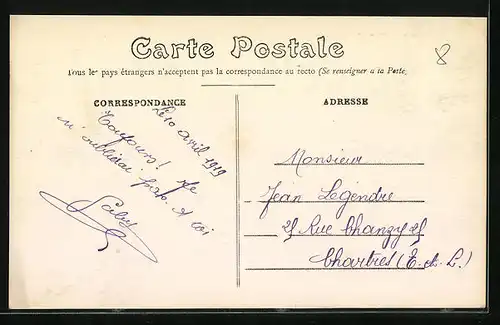 Carte Postale
8
Tous les pays étrangers n'acceptent pas la correspondance au recto (Se renseigner a la Poste,
CORRESPONDANCE
ADRESSE
Le 10 avril 1919
Toujours! Je
n'oublirai pas. A toi
Gaby
Monsieur
Jean Legendre
25 Rue Chanzy 25
Chartres (E. &. L.)